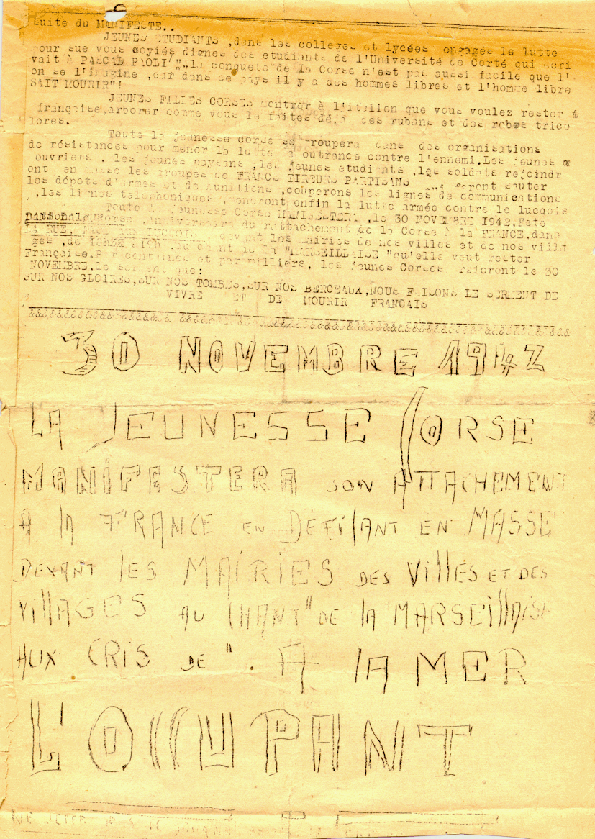 Suite du MANIFESTE..
JEUNES ETUDIANTS ,dans les colleges et lycées lutte
pour que vous soyiés dignes des etudiants de l'Université de Corté qui ecri
vait à PASCAL PAOLI "..La conquete de la Corse n'est pas aussi facile que l'
on se l'imagine ,car dans ce pays il y a des hommes libres et l'homme libre
SAIT MOURIR"!
JEUNES FILLES CORSES montrer à l'italien que vous voulez rester
française,arborer comme vous le faites déjà des rubans et des robes trico
lores.
Toute la jeunesse corse se groupera dans des organisations
de résistances pour mener la lutte à outrance contre l'ennemi.Les jeunes
ouvriers , les jeunes paysans ,les jeunes etudiants , les soldats rejoindr
ont en masse les groupes de FRANCS TIREURS PARTISANS feront sauter
les dépots d'armes et de munitions ,couperons les lignes de communications
,les lignes telephoniques , meneront enfin la lutte armée contre le lucquois
Toute la jeunesse Corse MANIFESTERA , le 30 NOVEMBRE 1942,Fete
NATIONALE du rattachement de la Corse à la FRANCE,dans
LA RUE, les mairies de nos villes et de nos villa
ges ,la MARSEILLAISE "qu'elle veut rester
Française.Par centaines et par milliers, les jeunes Corses le 30
NOVEMBRE.Le serment que:
SUR NOS GLOIRES,SUR NOS TOMBES,SUR NOS BERCEAUX,NOUS FAISONS LE SERMENT DE
VIVRE ET DE MOURIR FRANCAIS
30 NOVEMBRE 1942
LA JEUNESSE CORSE
MANIFESTERA SON ATTACHEMENT
A la FRANCE EN DEFILANT EN MASSE
DEVANT LES MAIRIES DES VILLES ET DES
VILLAGES AU CHANT "DE LA MARSEILLAISE
AUX CRIS DE ". A LA MER
L'OCCUPANT